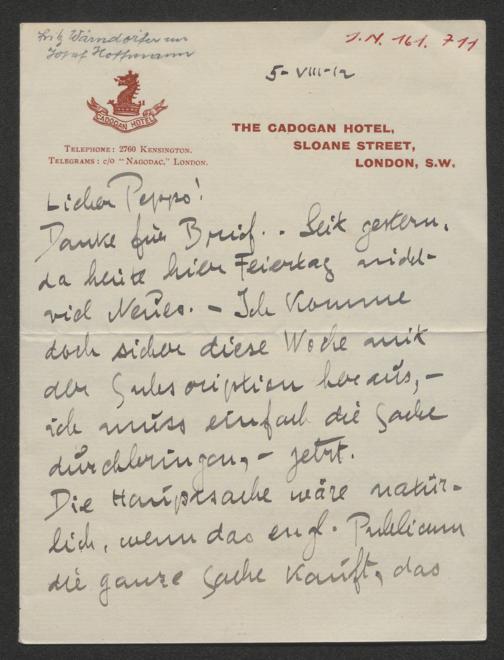 Fritz Wärndorfer an
Josef Hoffmann
J.N. 161.711
5-VIII-12
CADOGAN HOTEL
TELEPHONE: 2760 KENSINGTON.
TELEGRAMS: c/o "NAGODAC," LONDON.
THE CADOGAN HOTEL,
SLOANE STREET,
LONDON, S.W.
Lieber Peppo!
Danke für Brief. . Seit gestern,
da heute hier Feiertag nicht
viel Neues. – Ich komme
doch sicher diese Woche mit
der Subscription heraus, –
ich muss einfach die Sache
durchbringen, – jetzt.
Die Hauptsache wäre natür-
lich, wenn das engl. Publicum
die ganze Sache kauft, das